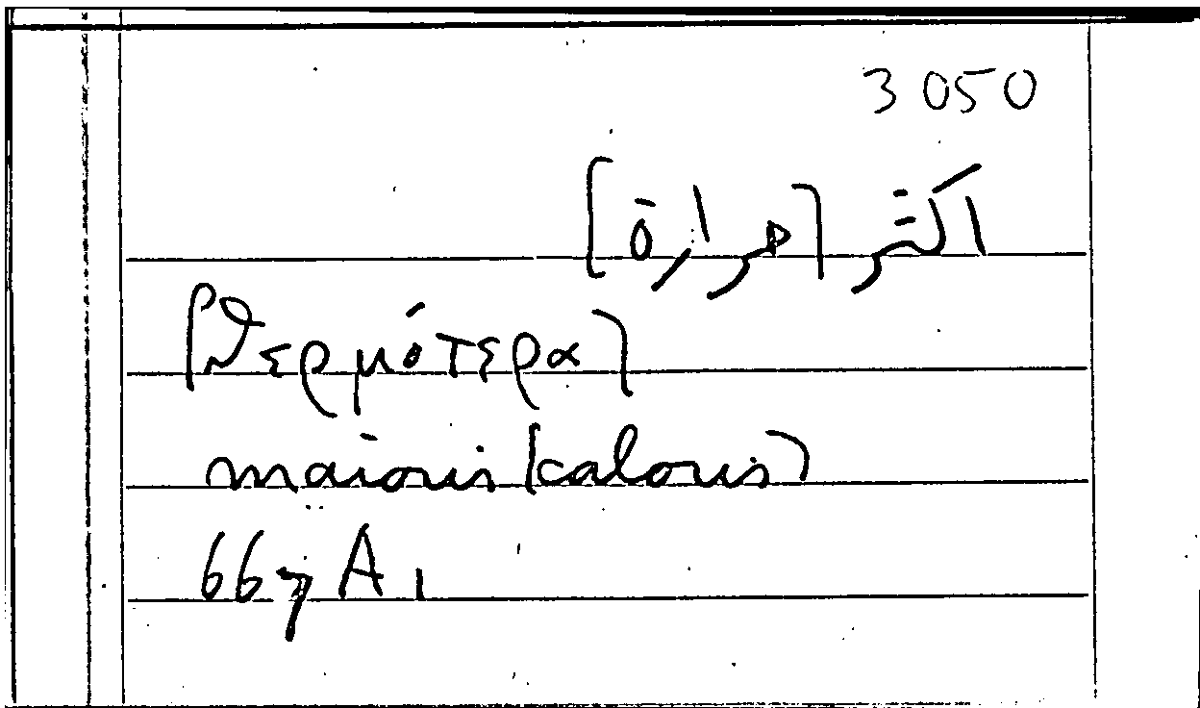 3050
اكثر [حرارة]
[θερμότερα]
maioris [caloris]
667 A 1